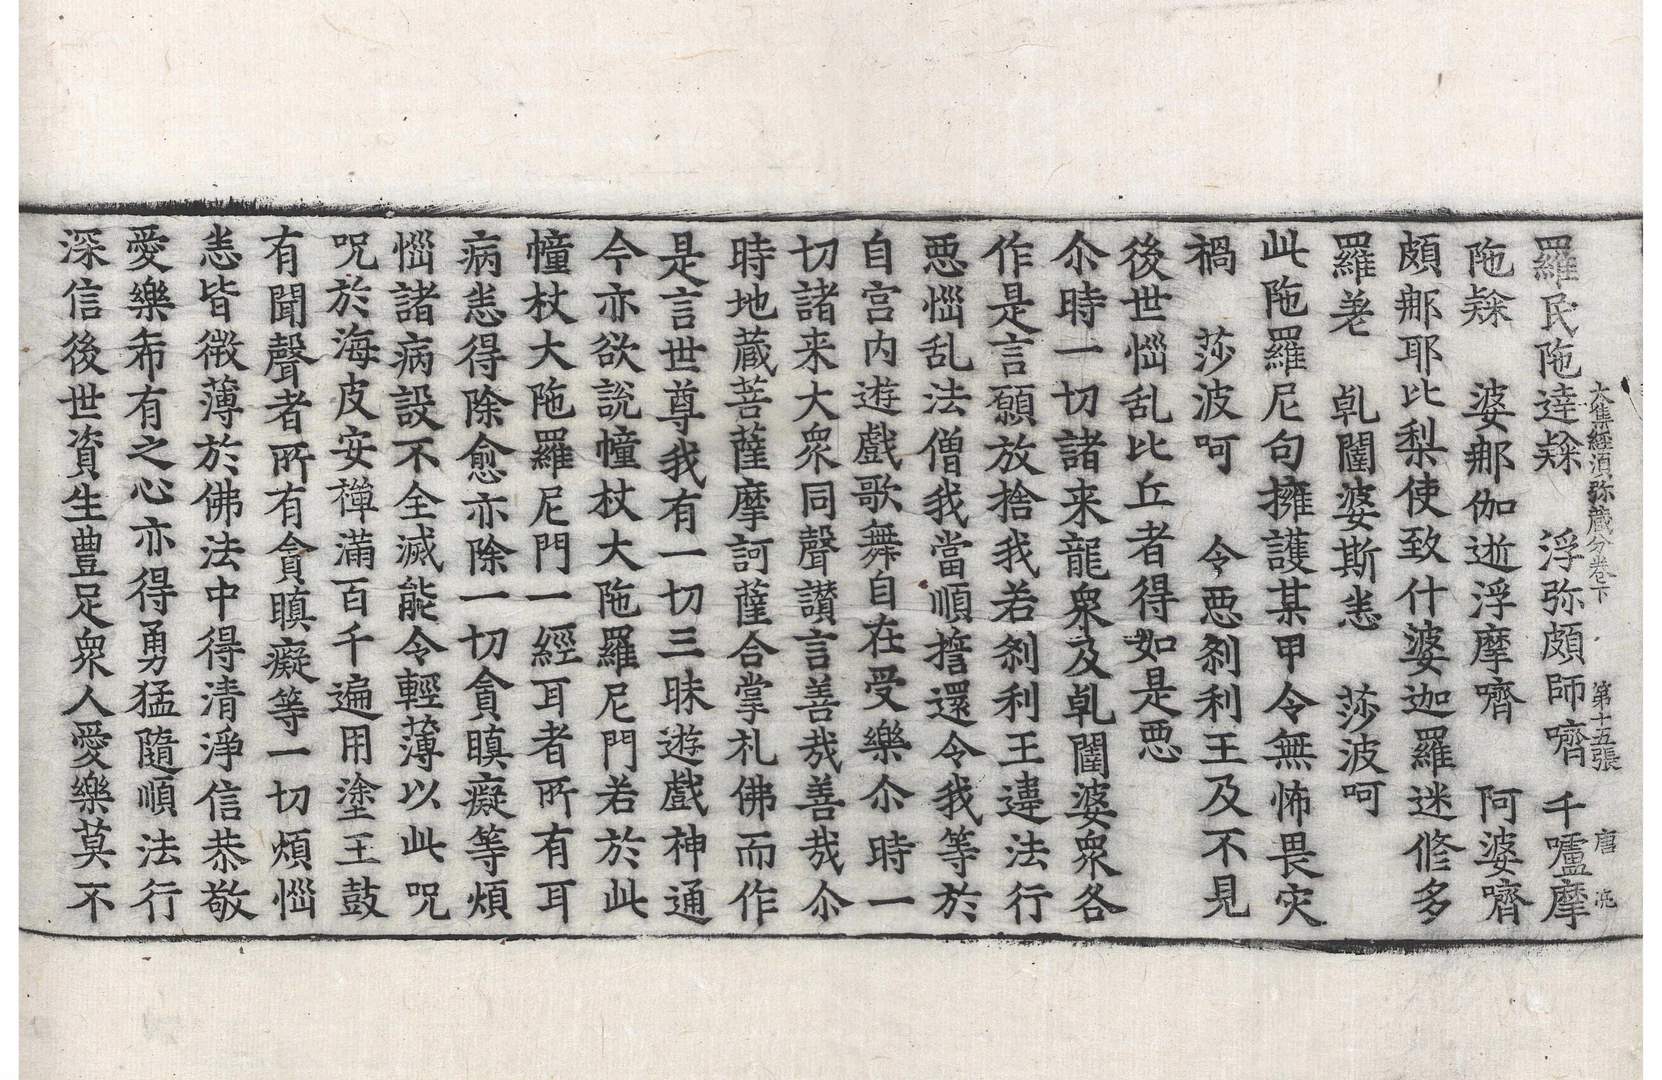 大集經須弥蔵分卷下 第十五張 唐
羅民陁達𥻘 浮弥頗師嚌 千嚧摩
陁𥻘 婆那伽逝浮摩嚌 阿婆嚌
頗那耶比梨使致什婆迦羅迷修多
羅差 乹闥婆斯恚 莎波呵
此陁羅尼句擁護某甲令無怖畏灾
禍 莎波呵 令悪剎利王及不見
後世惱乱比丘者得如是悪
尒時一切諸来龍衆及乹闥婆衆各
作是言願放捨我若剎利王違法行
悪惱乱法僧我當順擔還令我等於
自宫内遊戲歌舞自在受樂尒時一
切諸来大衆同聲讃言善哉善哉尒
時地蔵菩薩摩訶薩合掌礼佛而作
是言世尊我有一切三昧遊戲神通
今亦欲說幢杖大陁羅尼門若於此
幢杖大陁羅尼門一經耳者所有耳
病恚得除愈亦除一切貪瞋癡等煩
惱諸病設不全滅能令輕薄以此呪
呪於海皮安禪滿百千遍用塗王鼓
有聞聲者所有貪瞋癡等一切煩惱
恚皆微薄於佛法中得清淨信恭敬
愛樂希有之心亦得勇猛隨順法行
深信後世資生豊足衆人愛樂莫不